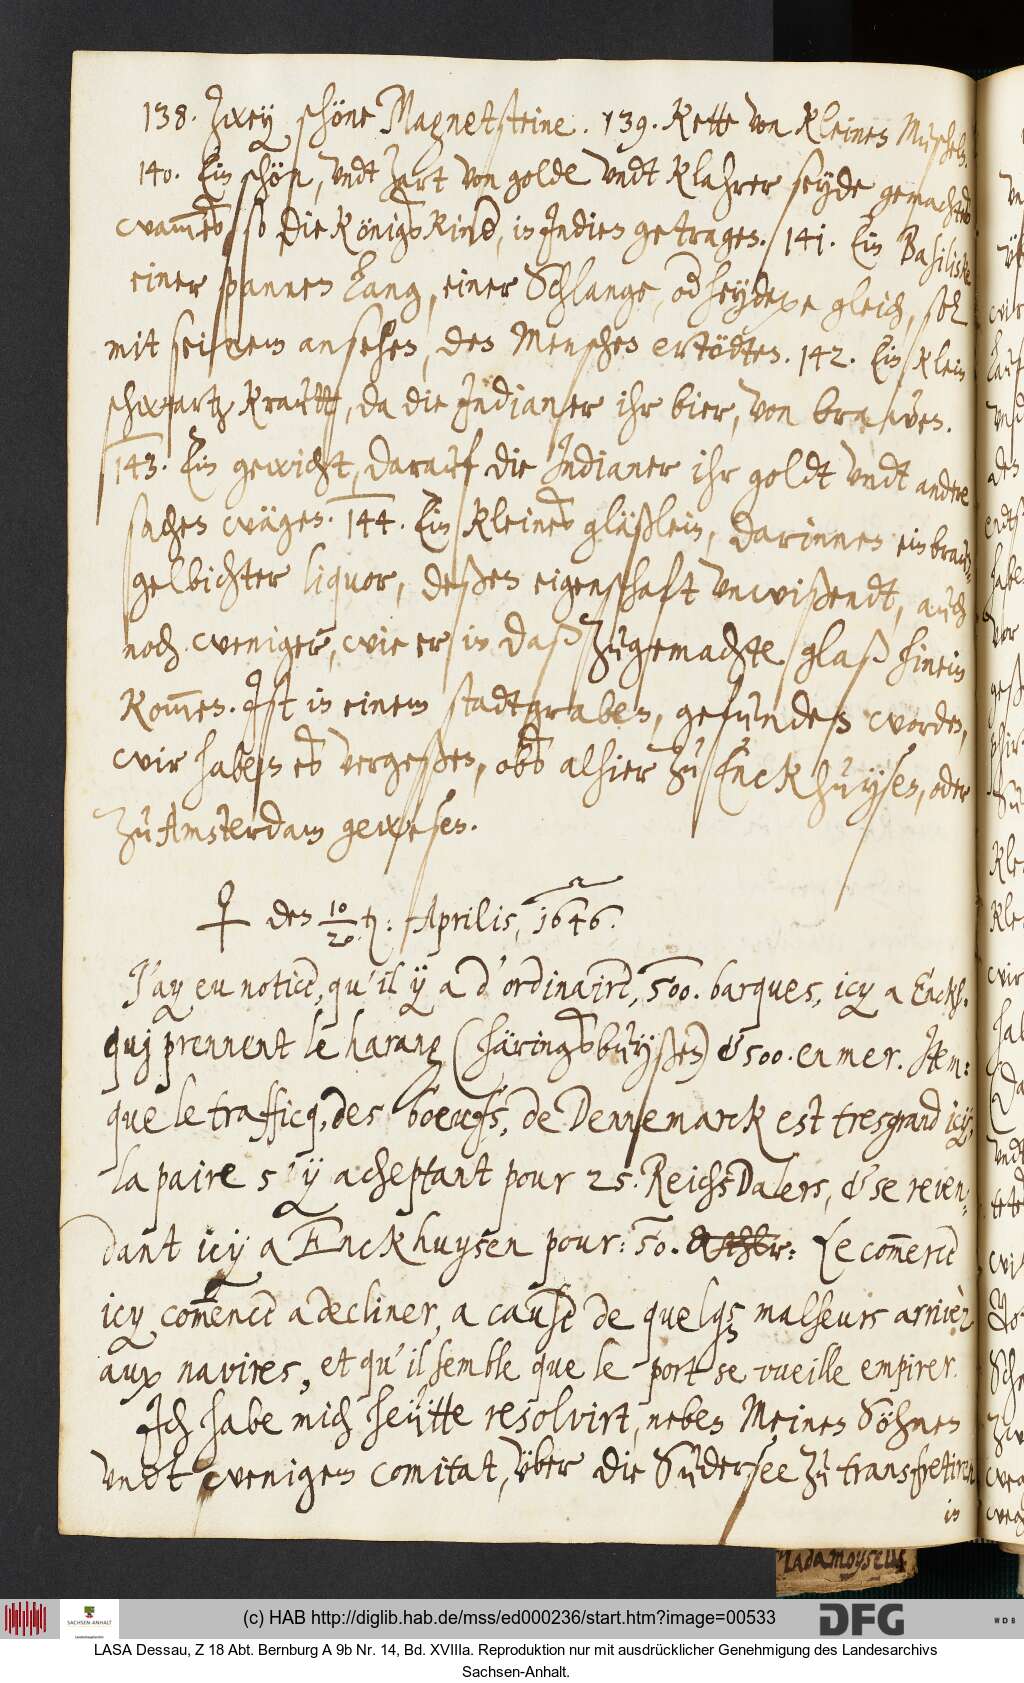 138. Zwey schöne Magnetsteine. 139. Kette von kleinen Muscheln.
140. Ein schön, undt zart von golde undt klahrer seyde gemachtes
wammes so die Königs Kinder, in Indien getragen. 141. Ein Basiliske
einer spannen lang, einer Schlange, od heydexe gleich, soll
mit seinem ansehen, den Menschen ertödten. 142. Ein klein
schwartz krautt, da die Indianer ihr bier, von brawen.
143. Ein gewicht, darauf die Indianer ihr goldt undt andere
sachen wägen. 144. Ein kleines gläßlein, darinnen ein braun-
gelbichter liquor, deßen eigenschaft unwißendt, auch
noch weniger, wie er in daß zugemachte glaß hinein
kom̄en. Ist in einem stadtgraben, gefunden worden,
wir haben es vergeßen, obs alhier zu Enckhuysen, oder
zu Amsterdam gewesen.
♀ den 10/20. t: Aprilis, 1646.
J'ay eu notice, qu'il ÿ a d'ordinaire, 500. barques, icy a Enckh.
quj prennent le harang (häringsbuyßen) & 500. en mer. Item:
que le trafficq, des boeufs, de Dennemarck est tresgrand icy,
la paire s'ÿ acheptant pour 25. ReichsDalers, & se reven-
dant icy a Enckhuysen pour: 50. Le com̄erce
icy com̄ence a decliner, a cause de quelqs malheurs arrivèz
aux navires, et qu'il semble que le port se vueille empirer.
Ich habe mich heütte resolvirt, neben Meinen Söhnen
undt wenigem comitat, über die Südersee zu transfretiren
in
Madamoyselle
(c) HAB http://diglib.hab.de/mss/ed000236/start.htm?image=00533
DFG
WDB
SACHSEN-ANHALT
LASA Dessau, Z 18 Abt. Bernburg A 9b Nr. 14, Bd. XVIIIa. Reproduktion nur mit ausdrücklicher Genehmigung des Landesarchivs
Sachsen-Anhalt.